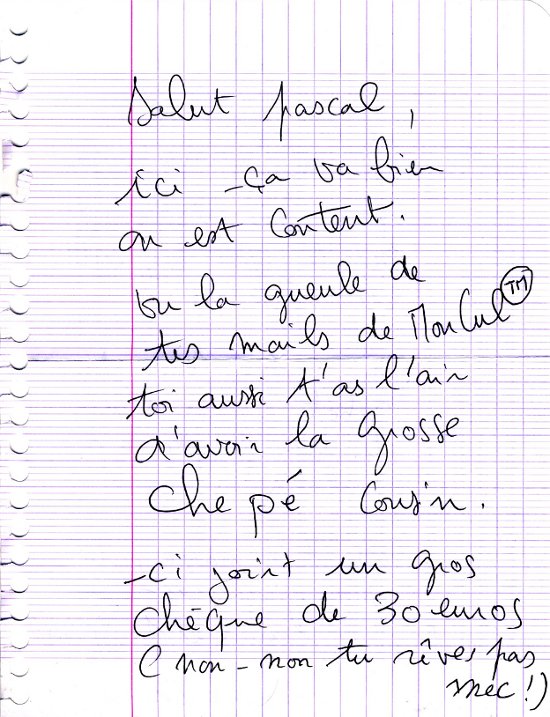 Salut pascal,
ici _ ça va bien
on est content.
vu la gueule de
tes mails de MonCul™
toi aussi t'as l'air
d'avoir la grosse
che pé cousin.
_ ci joint un gros
chèque de 30 euros
(non _ non tu rêves pas
mec !)